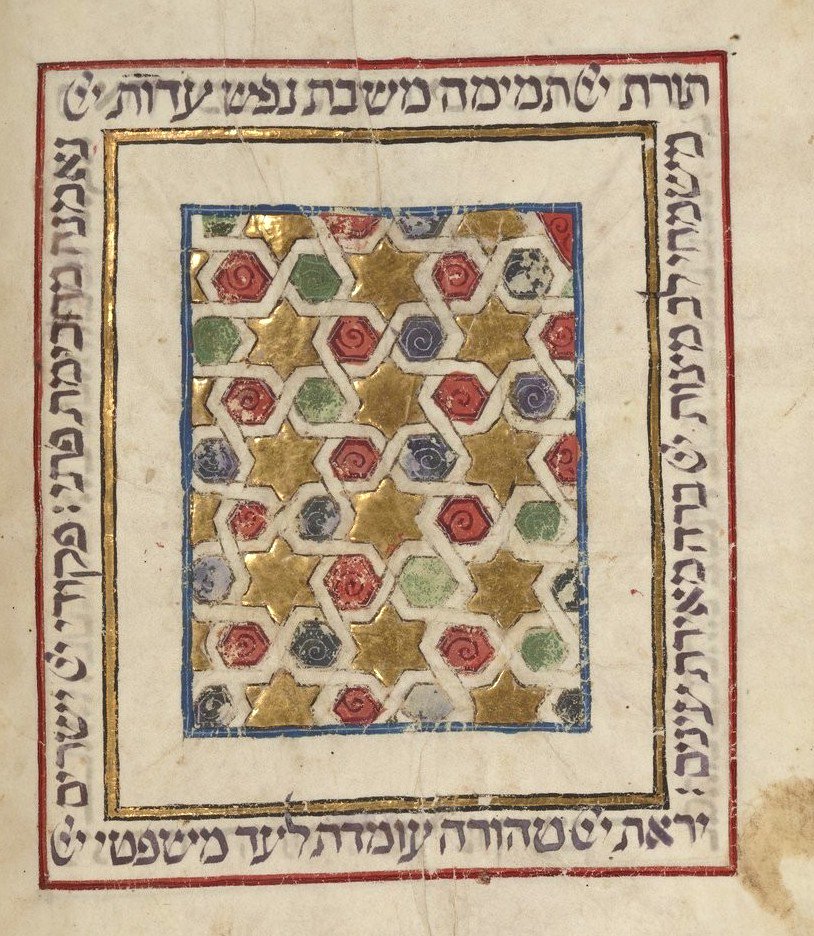 תורת יי תמימה משבת נפש עדות יי
נאמנה מחכימת פתי: פקודי יי ישרים
משמחי לב מצות יי ברה מאירת עינים:
יראת יי טהורה עומדת לעד משפטי יי